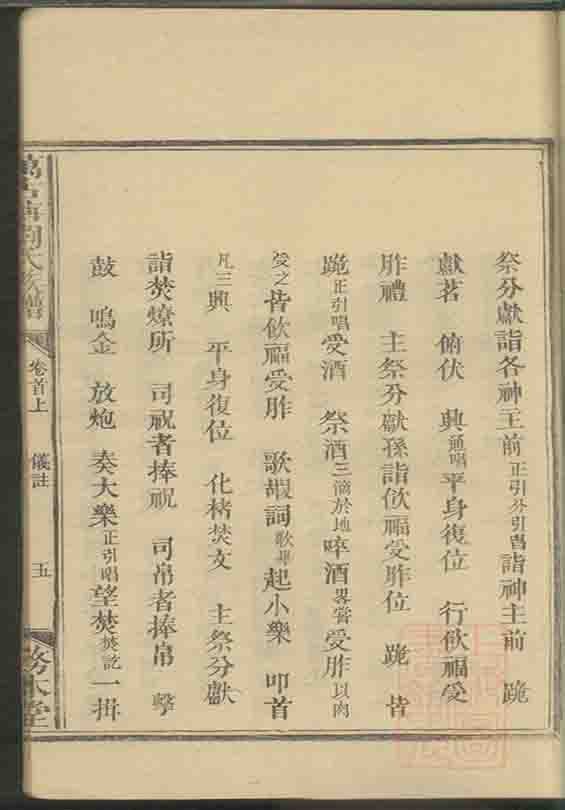 祭分獻詣各神主前正引分引唱詣神主前　跪
獻茗　俯伏　興通唱平身復位　行飲福受
胙禮　主祭分獻孫詣飲福受胙位　跪　皆
跪正引唱受酒　祭酒三滴於地啐酒畧嘗受胙以肉
受之皆飲福受胙　歌嘏詞歌畢起小樂　叩首
凡三興　平身復位　化楮焚文　主祭分獻
詣焚燎所　司祝者捧祝　司帛者捧帛　擊
鼓　鳴金　放炮　奏大樂正引唱望焚焚訖一揖
卷首上　儀註　五　務本堂